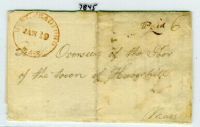 7845
JAN 19
Paid 6
Overseers of the Poor
of the town of Haverhill
Mass